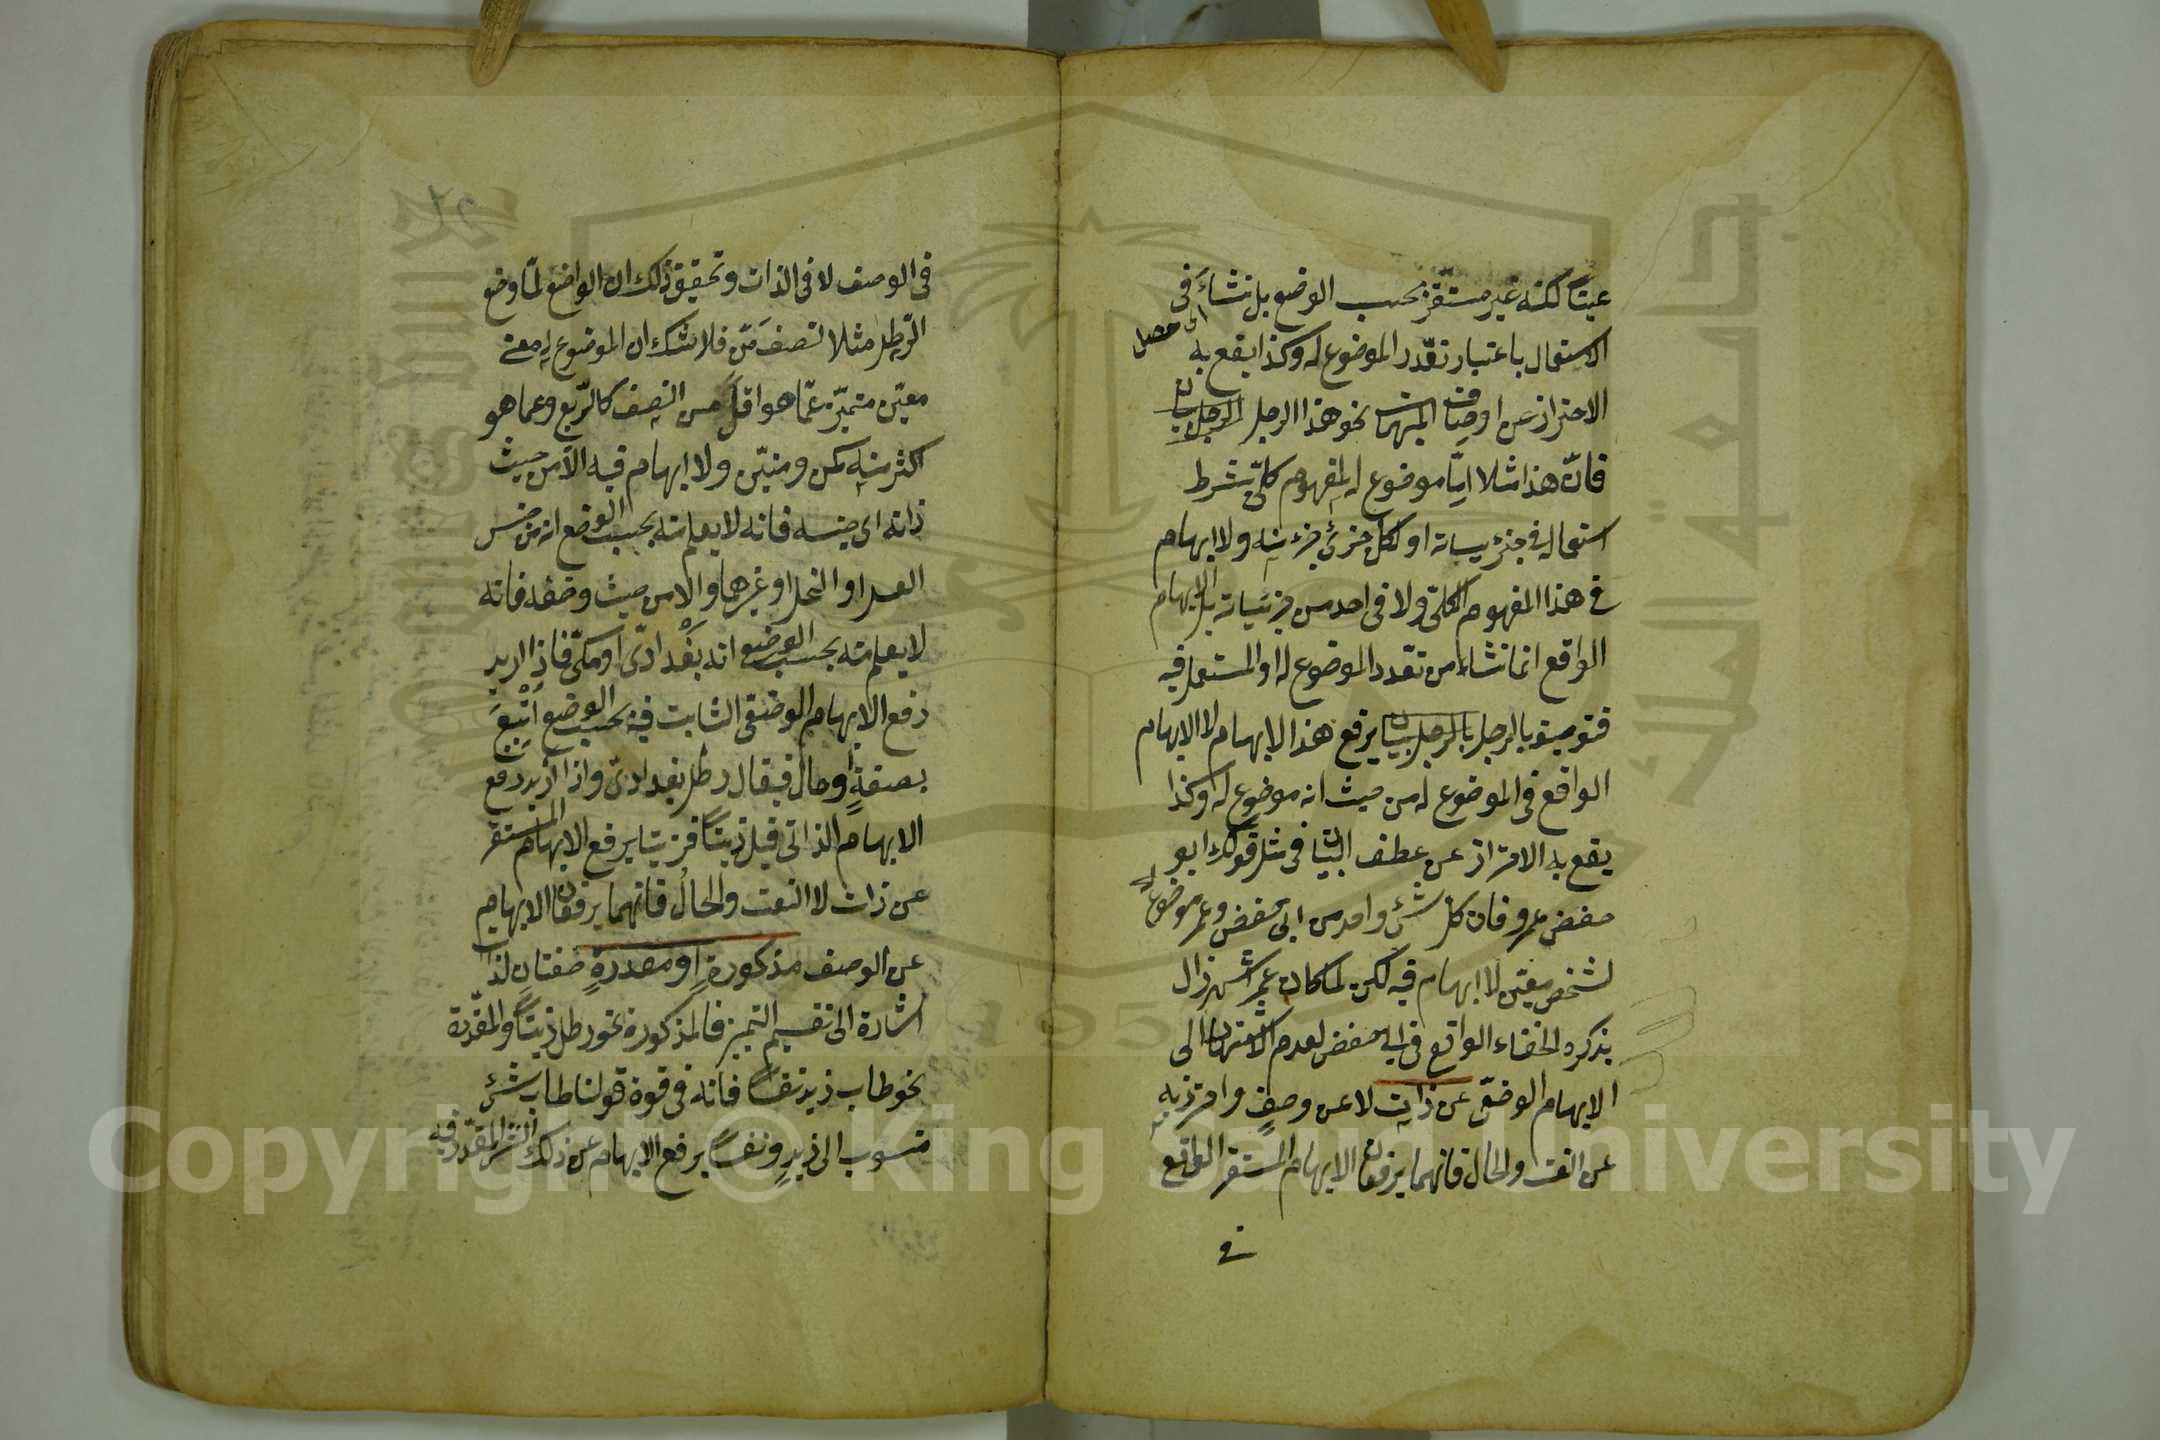 عينًا لكنه غير مستقر بحسب الوضع بل نشاء في
الاستعمال باعتبار تعدد الموضوع له وكذا يقع به
اى حصل
الاحتراز عن اوصاف المبهمات نحو هذا الرجل
فان هذا مثلا اما موضوع لمفهوم كلى بشرط
استعماله في جزئياته او لكل جزئى جزئى منه ولا ابهام
في هذا المفهوم الكلى ولا في احد من جزئياته بل الابهام
الواقع انما نشاء من تعدد الموضوع له او المستعمل فيه
فتوصيفه بالرجل يرفع هذا الابهام لا الابهام
الواقع في الموضوع له من حيث انه موضوع له وكذا
يقع به الاحتراز عن عطف البيان في مثل قولك ابو
حفص عمر فان كل شئ واحد من ابى حفص وعمر موضوع له
لشخص معين لا ابهام فيه لكن لما كان عمر اشهر زال
بذكره الخفاء الواقع في ابى حفص لعدم الاشتهار لا
الابهام الوضعى عن ذات لا عن وصف واحترز به
عن النعت والحال فانهما يرفعان الابهام المستقر الواقع
في
في الوصف لا في الذات وتحقيق ذلك ان الواضع لما وضع
الرطل مثلا لنصف مَنّ فلا شك ان الموضوع له معنى
معيّن متميّز عمّا هو اقل من النصف كالربع وعما هو
اكثر منه كمن ومنيّن ولا ابهام فيه الا من حيث
ذاته اى جنسه فانه لا يعلم منه بحسب الوضع انه من جنس
العسل او الخل او غيرهما والا من حيث وصفه فانه
لا يعلم منه بحسب الوضع انه بَغْدادىّ او مكىّ فاذا اريد
رفع الابهام الوصفى الثابت فيه بحسب الوضع اُتْبِعَ
بصفةٍ او حال فيقال رطل بغدادىّ واذا اريد رفع
الابهام الذاتى قيل زيتًا فزيتا يرفع الابهام المستقر
عن ذات لا النعت والحالُ فانهما يرفعان الابهام
عن الوصف مذكورةٍ او مقدرةٍ صفتانِ لذات
اشارة الى تقسيم التميز فالمذكورة نحو رطل زيتًا والمقدّرة
نحو طاب زيد نفسًا فانه في قوة قولنا طاب شئ
منسوب الى زيدٍ ونفسًا يرفع الابهام عن ذلك الشئ المقدّر فيه
Copyright © King Saud University
جامعة الملك سعود
King Saud University
1957